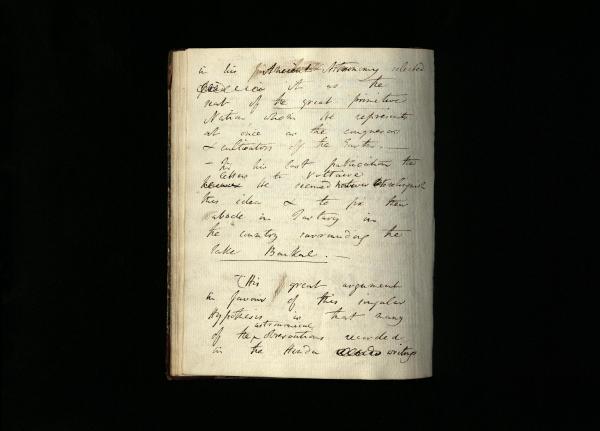 in his Ancient Astronomy selected
it as the
seat of the great primitive
Nation whom he represents
at once as the conquerors
& cultivators of the Earth. —
— In his last publication the
letters to Voltaire
he seemed however to relinquish
this idea & to fix their
abode in Tartary in
the country surrounding the
lake Baikal. —
This great argument
in favour of this singular
Hypothesis is that many
astronomical
of the observations recorded
in the Hindu writings